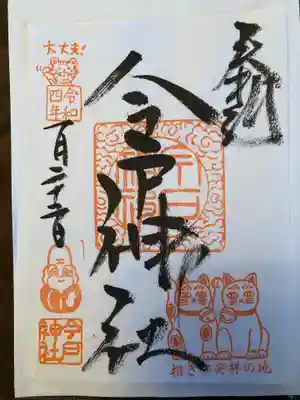 奉拝
今戸神社
大丈夫!
令和
四年
一月二十一日
今戸
神社
招き猫発祥の地